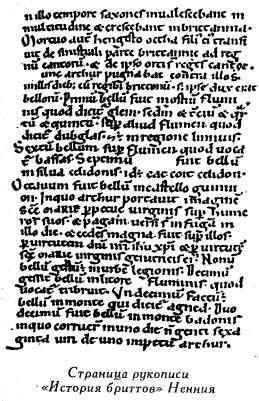 n illo tempore saxones inualescebant in
multitudine & crescebant inbrittannia.
Mortuo aut hengisto octha fili ei transi
uit de sinistrali parte brittanniæ ad reg
nū cantorū. & de ipso orti reges cantor.
unc arthur pugnabat contra illos.
millis dieb; cū regibᵘ brittonū. s; ipse dux erat
bellorū. Primū bellū fuit inostiū flumi
nis quod dicit glein. sedm & tciū & qr
tū & quintū. sup aliud flumen quod
dicit dubglas. & in regione linnuis
Sextū bellum sup flumen quod uoca
t bassas Septimū fuit bellū
in silua celidonis. id ; cat coit celidon.
Octauum fuit bellū incastello guinni
on. Inquo arthur portauit imaginē
scē mariæ ppetuæ uirginis sup hume
ros suos. & pagani uersi in fuga in
illo die. & cedes magna fuit sup illos.
p uirtutem dnī nrī ihu xpī & p uirtutē
scē mariæ uirginis genitricis ei. Nonū
bellū gestū ; inurbe legionis. Decimū
gessit bellū inlitore fluminis. quod
uocat tribruit. Undecimū factū ;
bellū inmonte qui dicit agned. Duo
decimū fuit bellū inmonte badonis
inquo corruer inuno die nōgenti sexa
ginta uiri de uno impetu arthur.
Страница рукописи
«История бриттов» Ненния